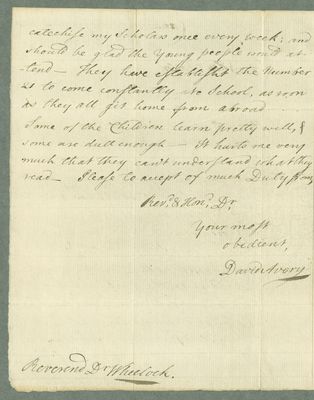 catechise my Scholars once every week; and
should be glad the Young people would at-
tend — They have establisht the Number
21 to come constantly to School, as soon
as they all get home from abroad.
Some of the Children learn pretty well, &
some are dull enough — It hurts me very
much that they can't understand what they
read — Please to accept of much Duty from,
Revd. & Hond. Dr.
Your most
obedient,
David Avery
Reverend Dr Wheelock.